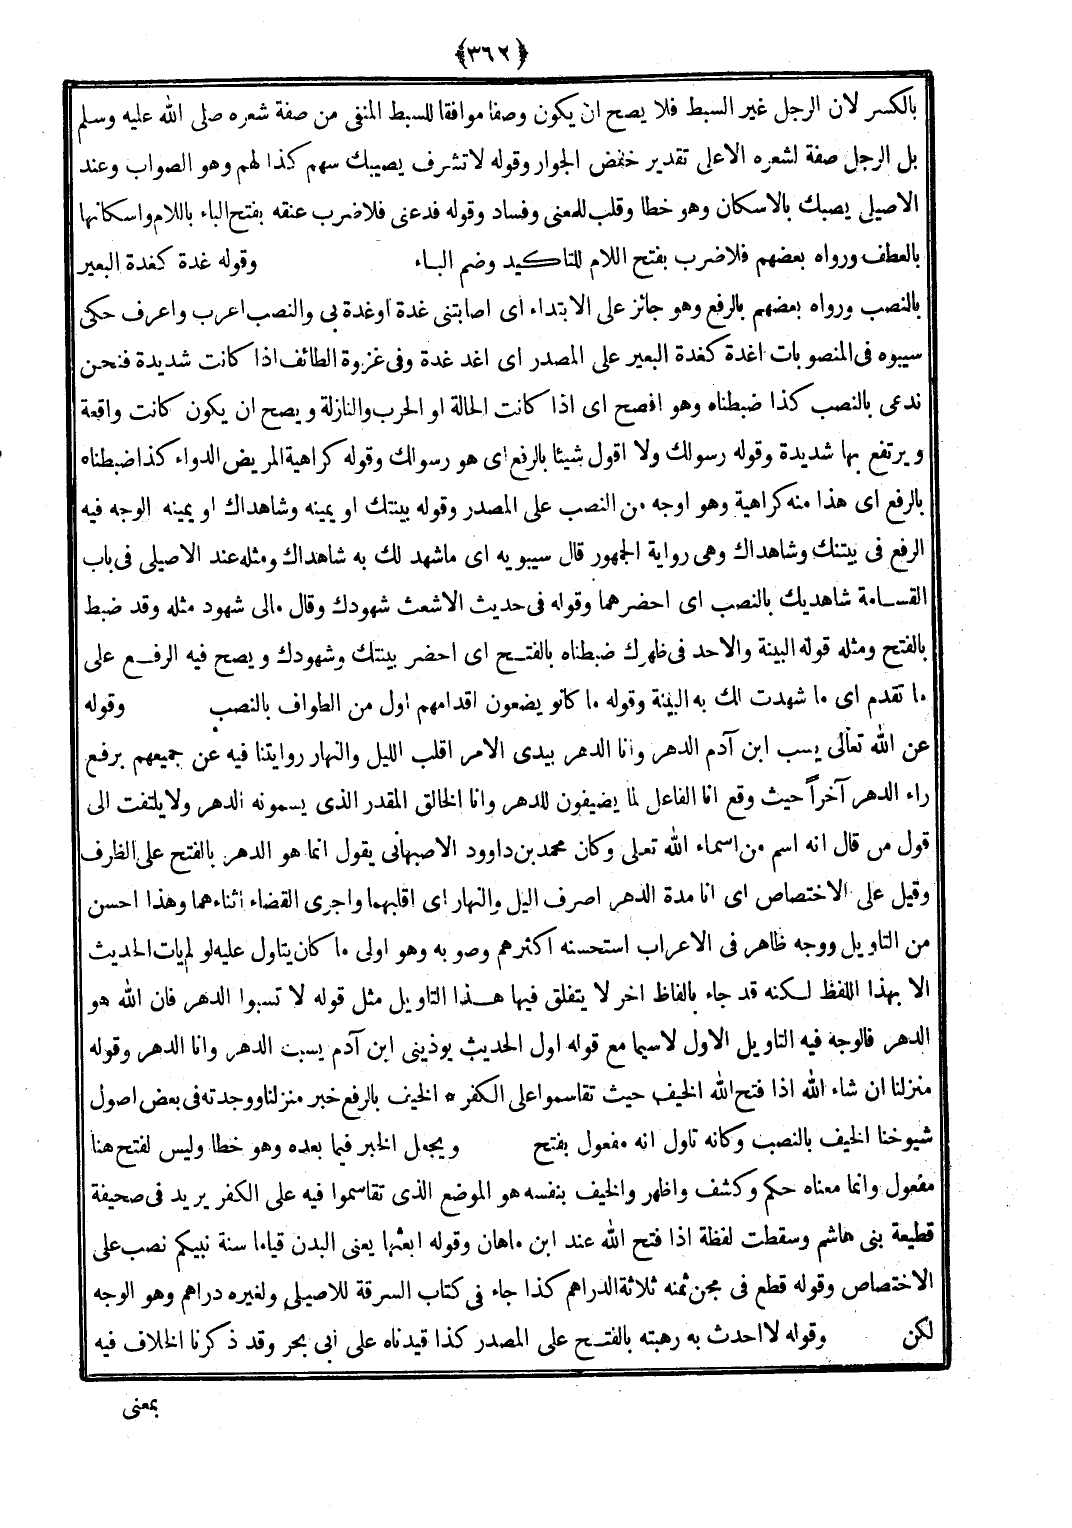 ﴿٣٦٢﴾
بالكسر لان الرجل غير السبط فلا يصح ان يكون وصفا موافقا للسبط المنفى من صفة شعره صلى الله عليه وسلم
بل الرجل صفة لشعره الاعلى تقدير خفض الجوار وقوله لاتشرف يصيبك سهم كذا لهم وهو الصواب وعند
الاصيلى يصبك بالاسكان وهو خطا وقلب للمعنى وفساد وقوله فدعنى فلاضرب عنقه بفتح الباء باللام واسكانها
بالعطف ورواه بعضهم فلاضرب بفتح اللام للتاكيد وضم الباء وقوله غدة كغدة البعير
بالنصب ورواه بعضهم بالرفع وهو جائز على الابتداء اى اصابتنى غدة اوغدة بى والنصب اعرب واعرف حكى
سيبوه فى المنصوبات اغدة كغدة البعير على المصدر اى اغد غدة وفى غزوة الطائف اذا كانت شديدة فنحن
ندعى بالنصب كذا ضبطناه وهو افصح اى اذا كانت الحالة او الحرب والنازلة ويصح ان يكون كانت واقعة
ويرتفع بها شديدة وقوله رسولك ولا اقول شيئا بالرفع اى هو رسولك وقوله كراهية المريض الدواء كذا ضبطناه
بالرفع اى هذا منه كراهية وهو اوجه من النصب على المصدر وقوله بينتك او يمينه وشاهداك او يمينه الوجه فيه
الرفع فى بيتنك وشاهداك وهى رواية الجمهور قال سيبويه اى ماشهد لك به شاهداك ومثله عند الاصيلى فى باب
القسامة شاهديك بالنصب اى احضرهما وقوله فى حديث الاشعث شهودك وقال مالى شهود مثله وقد ضبط
بالفتح ومثله قوله البينة والاحد فى ظهرك ضبطناه بالفتح اى احضر بينتك وشهودك ويصح فيه الرفع على
ما تقدم اى ما شهدت لك به البينة وقوله ما كانو يضعون اقدامهم اول من الطواف بالنصب وقوله
عن الله تعالى يسب ابن آدم الدهر وانا الدهر بيدى الامر اقلب الليل والنهار روايتنا فيه عن جميعهم برفع
راء الدهر آخراً حيث وقع انا الفاعل لما يضيفون للدهر وانا الخالق المقدر الذى يسمونه الدهر ولايلتفت الى
قول من قال انه اسم من اسماء الله تعلى وكان محمد بن داوود الاصبهانى يقول انما هو الدهر بالفتح على الظرف
وقيل على الاختصاص اى انا مدة الدهر اصرف اليل والنهار اى اقلبهما واجرى القضاء اثناءهما وهذا احسن
من التاويل ووجه ظاهر فى الاعراب استحسنه اكثرهم وصوبه وهو اولى ما كان يتاول عليه لو لم يات الحديث
الا بهذا اللفظ لكنه قد جاء بالفاظ اخر لا يتفلق فيها هذا التاويل مثل قوله لا تسبوا الدهر فان الله هو
الدهر فالوجه فيه التاويل الاول لاسيما مع قوله اول الحديث يوذينى ابن آدم يسب الدهر وانا الدهر وقوله
منزلنا ان شاء الله اذا فتح الله الخيف حيث تقاسموا على الكفر * الخيف بالرفع خبر منزلنا ووجدته فى بعض اصول
شيوخنا الخيف بالنصب وكانه تاول انه مفعول بفتح ويجعل الخبر فيما بعده وهو خطا وليس لفتح هنا
مفعول وانما معناه حكم وكشف واظهر والخيف بنفسه هو الموضع الذى تقاسموا فيه على الكفر يريد فى صحيفة
قطيعة بنى هاشم وسقطت لفظة اذا فتح الله عند ابن ماهان وقوله ابعثها يعنى البدن قياما سنة نبيكم نصب على
الاختصاص وقوله قطع فى مجن ثمنه ثلاثة الدراهم كذا جاء فى كتاب السرقة للاصيلى ولغيره دراهم وهو الوجه
لكن وقوله لااحدث به رهبته بالفتح على المصدر كذا قيدناه على أبى بحر وقد ذكرنا الخلاف فيه
بمعنى